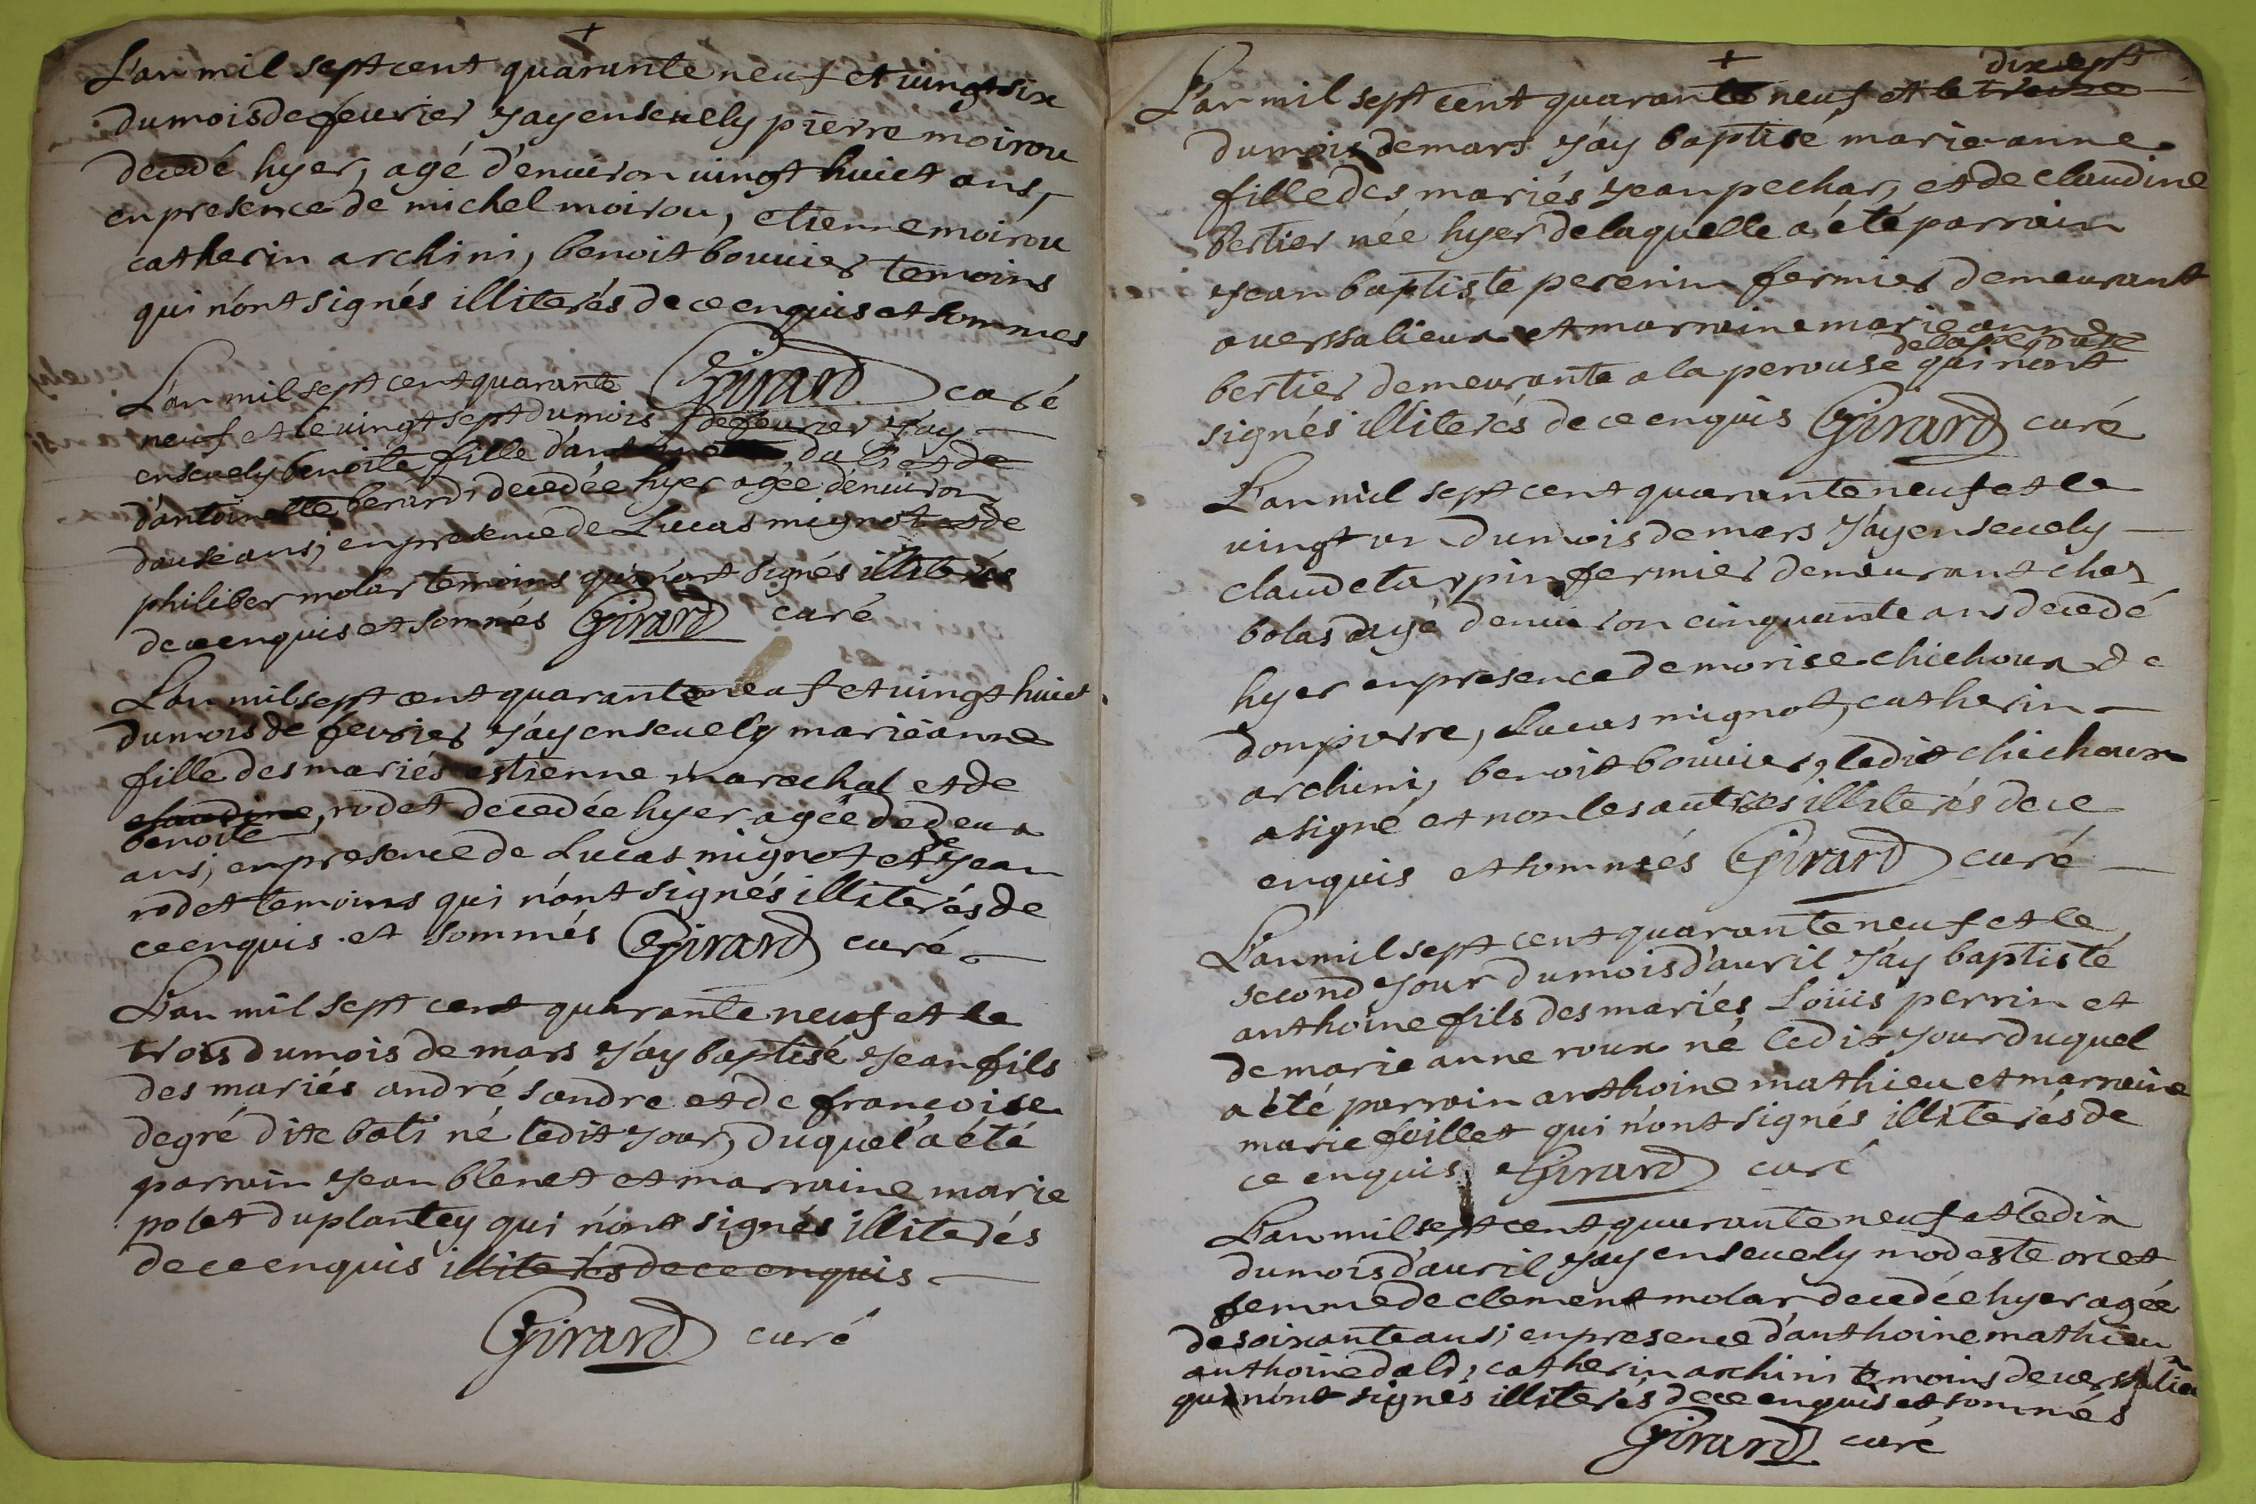 +
L'an mil sept cent quarante neuf et vingt six
du mois de feurier j'ay enseuely pierre moirou
decedé hyer, agé d'enuiron uingt huict ans,
en presence de michel moirou, etienne moirou
catherin archini, benoit bouuier temoins
qui n'ont signés illiterés de ce enquis et sommes
Girard curé
L'an mil sept cent quarante
neuf et le uingt sept du mois de feurier j'ay
enseuely benoite fille
d'antoinette berard, decedée hyer agée d'enuiron
douse ans, en presence de Lucas mignot et de
philiber molar temoins qui n'ont signés illiterés
de ce enquis et sommés Girard curé
L'an mil sept cent quarante neuf et uingt huict
du mois de feurier j'ay enseuely marie anne
fille des mariés estienne marechal et de
claudine rodet decedée hyer agée de deux
benoite
ans, en presence de Lucas mignot et de jean
rodet temoins qui n'ont signés illiterés de
ce enquis et sommés Girard curé
L'an mil sept cent quarante neuf et le
trois du mois de mars j'ay baptisé jean fils
des mariés andré sandre et de francoise
degré dite bati né ledit jour, duquel a été
parrain jean blenet et marraine marie
polet du plantey qui n'ont signés illiterés
de ce enquis illiterés de ce enquis
Girard curé
+
dix sept
L'an mil sept cent quarante neuf et le treize
du mois de mars j'ay baptisé marie anne
fille des mariés jean pechar, et de claudine
bertier née hyer de laquelle a été parrain
jean baptiste perenin fermier demeurant
a uerssalieux et marraine marie anne
de la perouse
bertier demeurante a la perouse qui n'ont
signés illiterés de ce enquis Girard curé
L'an mil sept cent quarante neuf et le
uingt un du mois de mars j'ay enseuely
claude tarpin fermier demeurant chez
bolas agé d'enuiron cinquante ans decedé
hyer en presence de morise chichoux de
donpierre, Lucas mignot, catherin
archini, benoit bouuier, ledit chichoux
a signé et non les autres illiterés de ce
enquis et sommés Girard curé
L'an mil sept cent quarante neuf et le
second jour du mois d'auril j'ay baptisté
anthoine fils des mariés Loüis perrin et
de marie anne roux né ledit jour duquel
a été parrain anthoine mathieu et marraine
marie foillet qui n'ont signés illiterés de
ce enquis Girard curé
L'an mil sept cent quarante neuf et le dix
du mois d'auril j'ay enseuely modeste orcet
femme de clement molar decedée hyer agée
de soixante ans, en presence d'anthoine mathieu
anthoine dald, catherin archini temoins de uerssalieu
qui n'ont signés illiterés de ce enquis et sommés
Girard curé